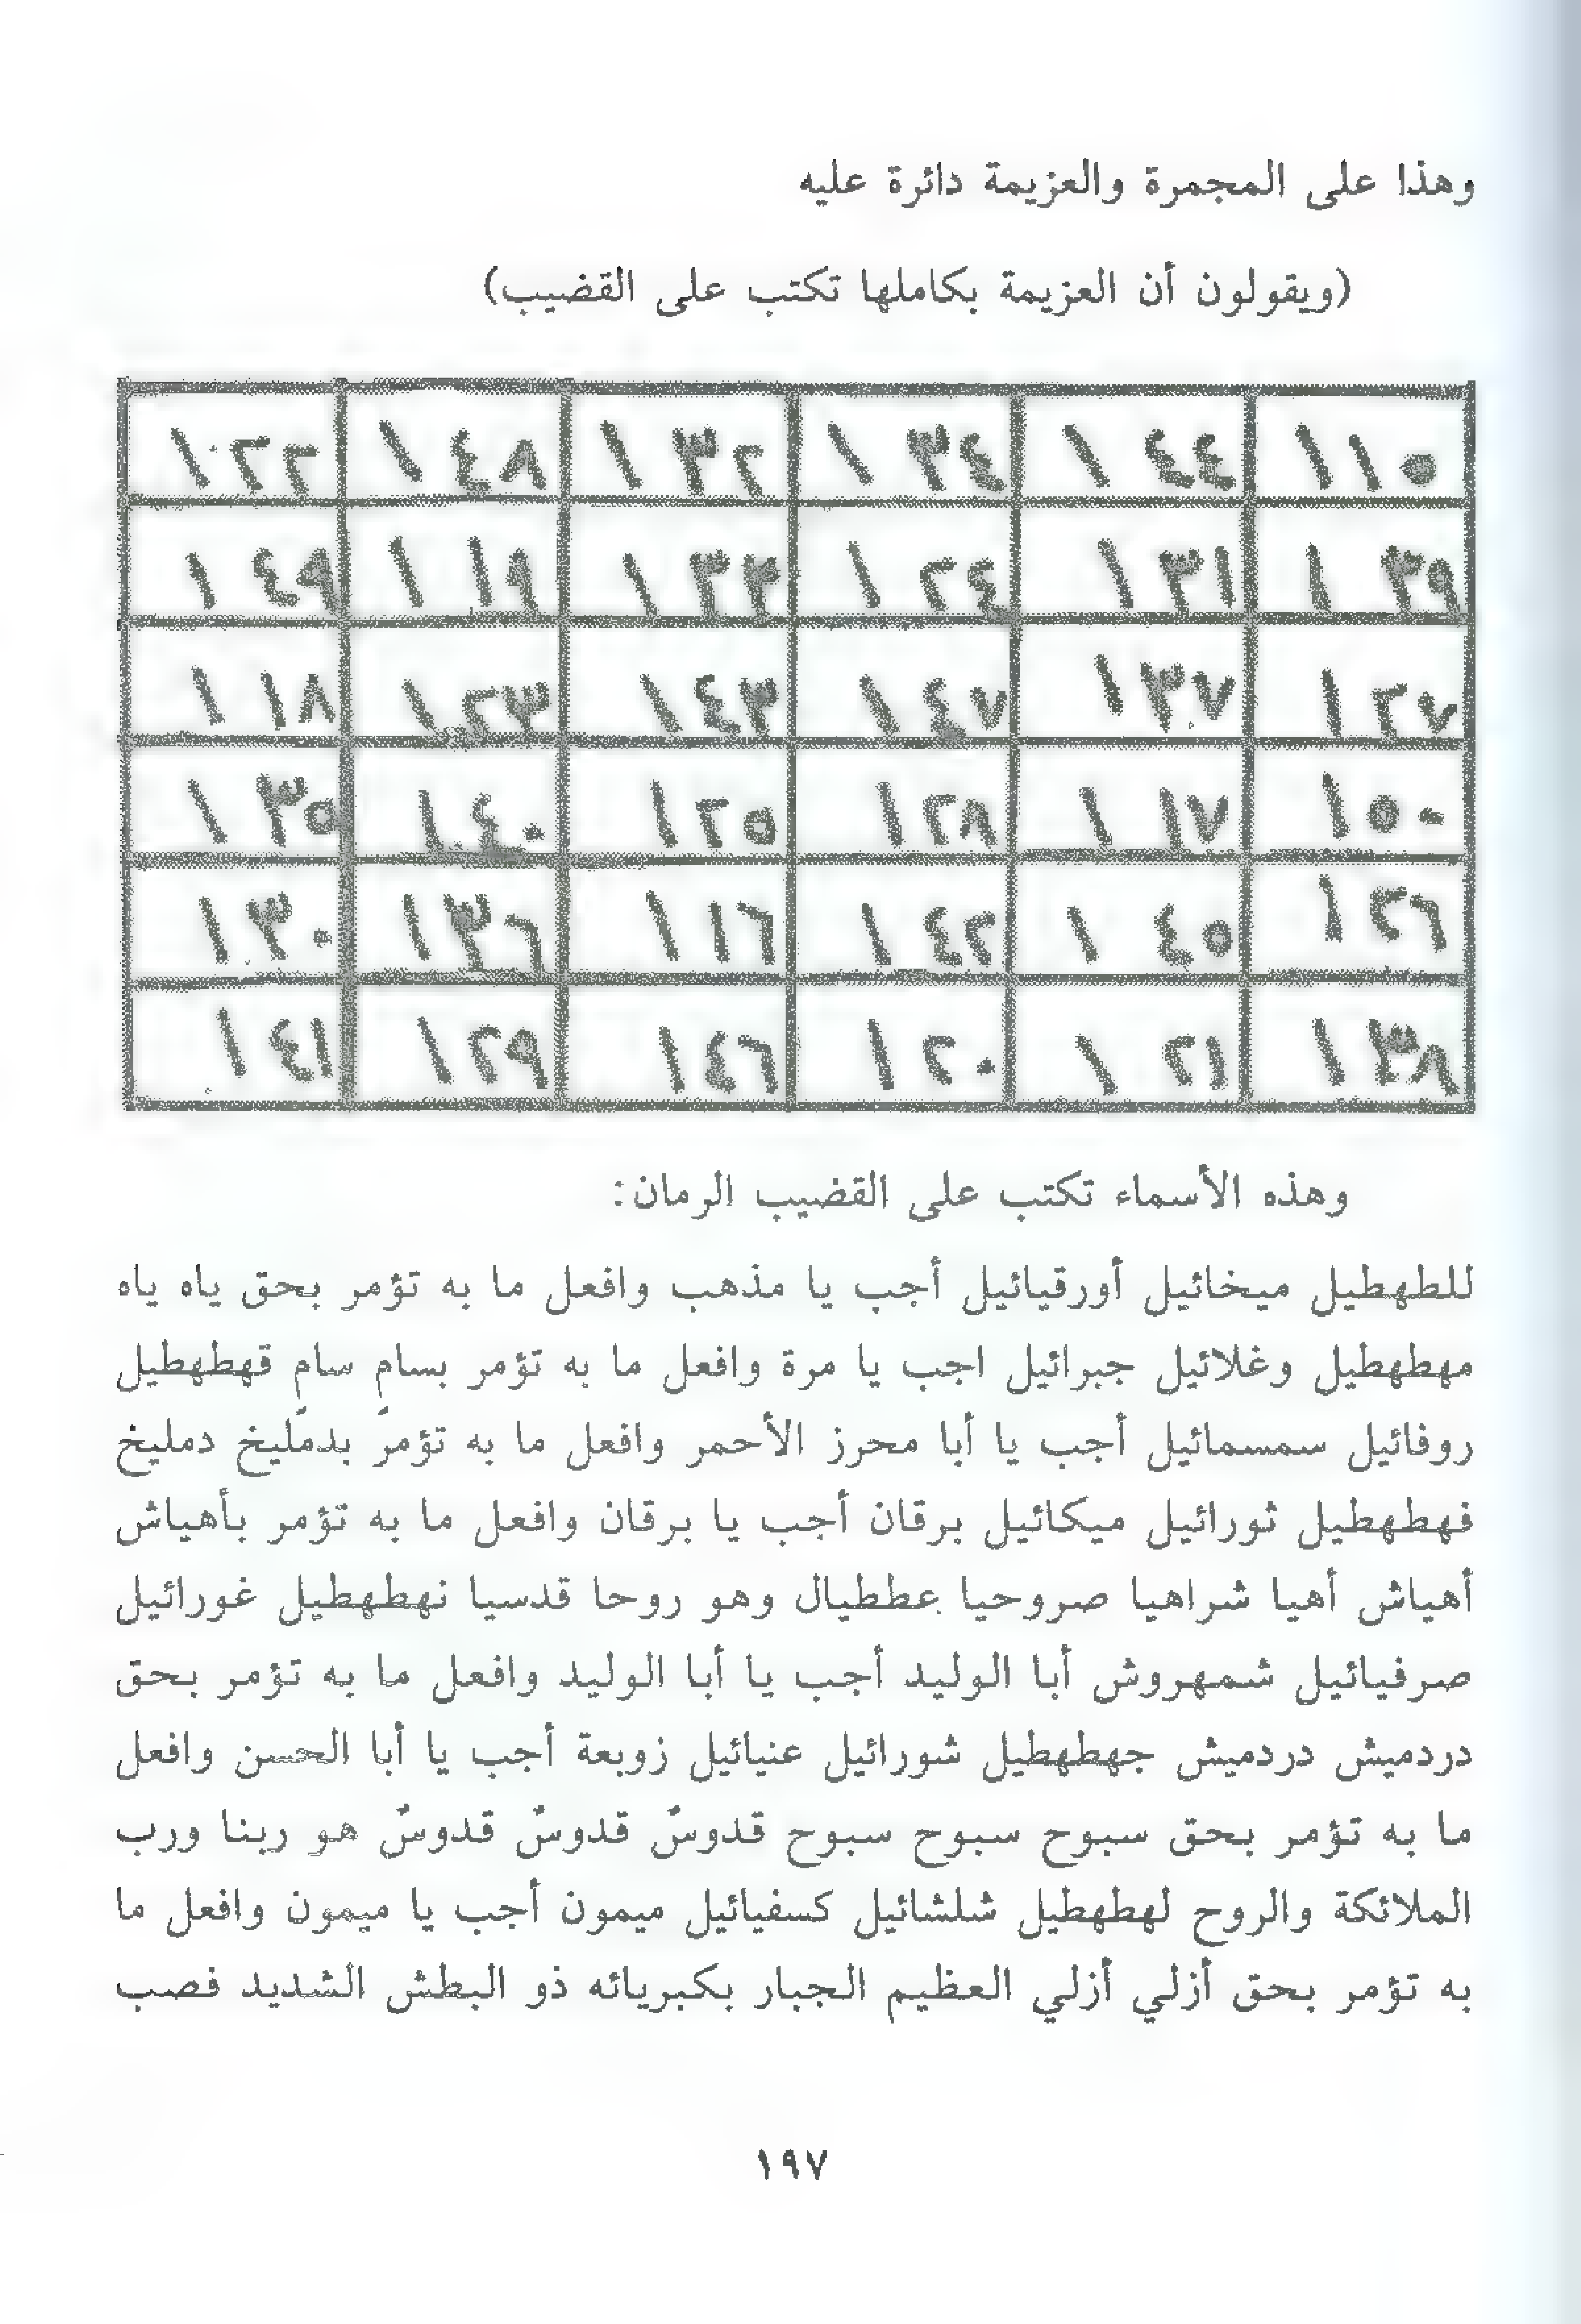 وهذا على المجمرة والعزيمة دائرة عليه
(ويقولون أن العزيمة بكاملها تكتب على القضيب)
١٠٢٢ ١٤٨ ١٣٢ ١٣٤ ١٤٤ ١١٥
١٤٩ ١١٩ ١٣٣ ١٢٤ ١٣١ ١٣٩
١١٨ ١٢٣ ١٤٣ ١٤٧ ١٣٧ ١٢٧
١٣٥ ١٤٠ ١٢٥ ١٢٨ ١١٧ ١٥٠
١٣٠ ١٣٦ ١١٦ ١٤٢ ١٤٥ ١٢٦
١٤١ ١٢٩ ١٤٦ ١٢٠ ١٢١ ١٣٨
وهذه الأسماء تكتب على القضيب الرمان:
للطهطيل ميخائيل أورقيائيل أجب يا مذهب وافعل ما به تؤمر بحق ياه ياه
مهطهطيل وغلائيل جبرائيل اجب يا مرة وافعل ما به تؤمر بسام سام قهطهطيل
روفائيل سمسمائيل أجب يا أبا محرز الأحمر وافعل ما به تؤمرّ بدمّليخ دمليخ
فهطهطيل ثورائيل ميكائيل برقان أجب يا برقان وافعل ما به تؤمر بأهياش
أهياش أهيا شراهيا صروحيا عططيال وهو روحا قدسيا نهطهطيل غورائيل
صرفيائيل شمهروش أبا الوليد أجب يا أبا الوليد وافعل ما به تؤمر بحق
دردميش دردميش جهطهطيل شورائيل عنيائيل زوبعة أجب يا أبا الحسن وافعل
ما به تؤمر بحق سبوح سبوح سبوح قدوسٌ قدوسٌ قدوسٌ هو ربنا ورب
الملائكة والروح لهطهطيل شلشائيل كسفيائيل ميمون أجب يا ميمون وافعل ما
به تؤمر بحق أزلي أزلي العظيم الجبار بكبريائه ذو البطش الشديد فصب
١٩٧